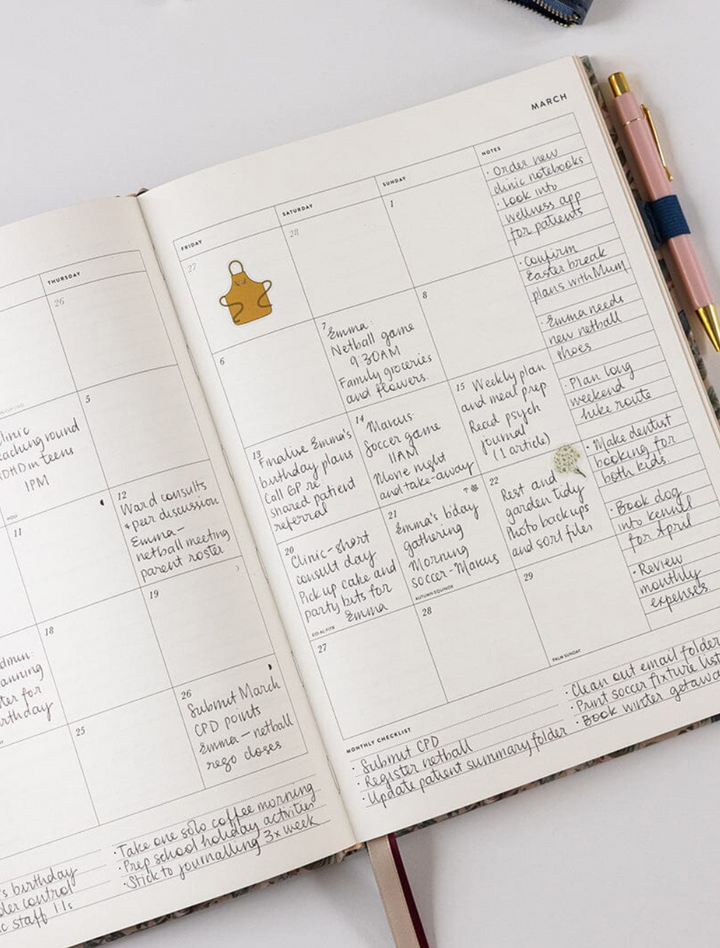 THURSDAY
26
linic
eaching round
DHD in teens
1PM
5
11
12
Ward consults
+ peer discussion
Emma-
netball meeting
parent roster
dmin:
anning
ter for
irthday
18
19
25
26
Submit March
CPD points
Emma - netball
rego closes
's birthday
der control
c staff 1:1s
· Take one solo coffee morning
· Prep school holiday activities
· Stick to journalling 3x week
MARCH
FRIDAY
SATURDAY
SUNDAY
NOTES
27
28
1
6
7
Emma:
Netball game
9:30AM
Family groceries
and flowers.
8
13
Finalise Emma's
birthday plans
Call GP re
shared patient
referral
14
Marcus:
Soccer game
11AM
Movie night
and take-away
15
Weekly plan
and meal prep
Read psych
journal
(1 article)
20
Clinic-short
consult day
Pick up cake and
party bits for
Emma
EID AL-FITR
21
Emma's b'day
gathering
Morning
soccer-Marcus
AUTUMN EQUINOX
22
Rest and
garden tidy
Photo backups
and sort files
27
28
29
PALM SUNDAY
· Order new
clinic notebooks
· Look into
wellness app
for patients
· Confirm
Easter break
plans with Mum
· Emma needs
new netball
shoes
· Plan long
weekend
hike route
· Make dentist
booking for
both kids
· Book dog
into kennel
for April
· Review
monthly
expenses
MONTHLY CHECKLIST
· Submit CPD
· Register netball
· Update patient summary folder
· Clean out email folder
· Print soccer fixture list
· Book winter getawa